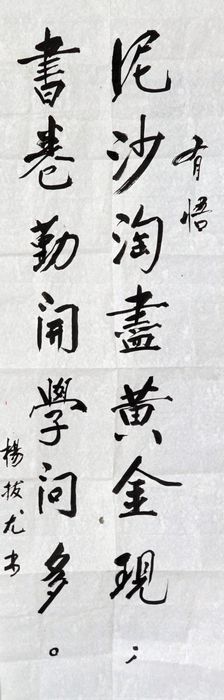 有悟
泥沙淘盡黄金現；
書卷勤開學問多。
楊拔尤书